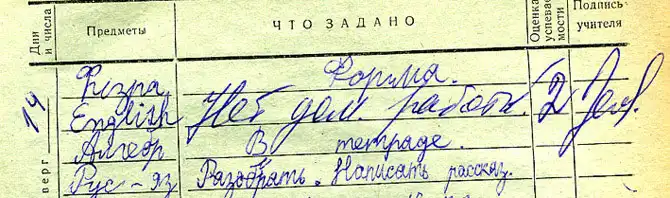 Дни и числа Предметы ЧТО ЗАДАНО Оценка успеваемости Подпись учителя
19 Физра Форма.
English Нет дом. работы. 2
Алгебр В тетраде.
верг Рус-яз Разобрать. Написать рассказ.